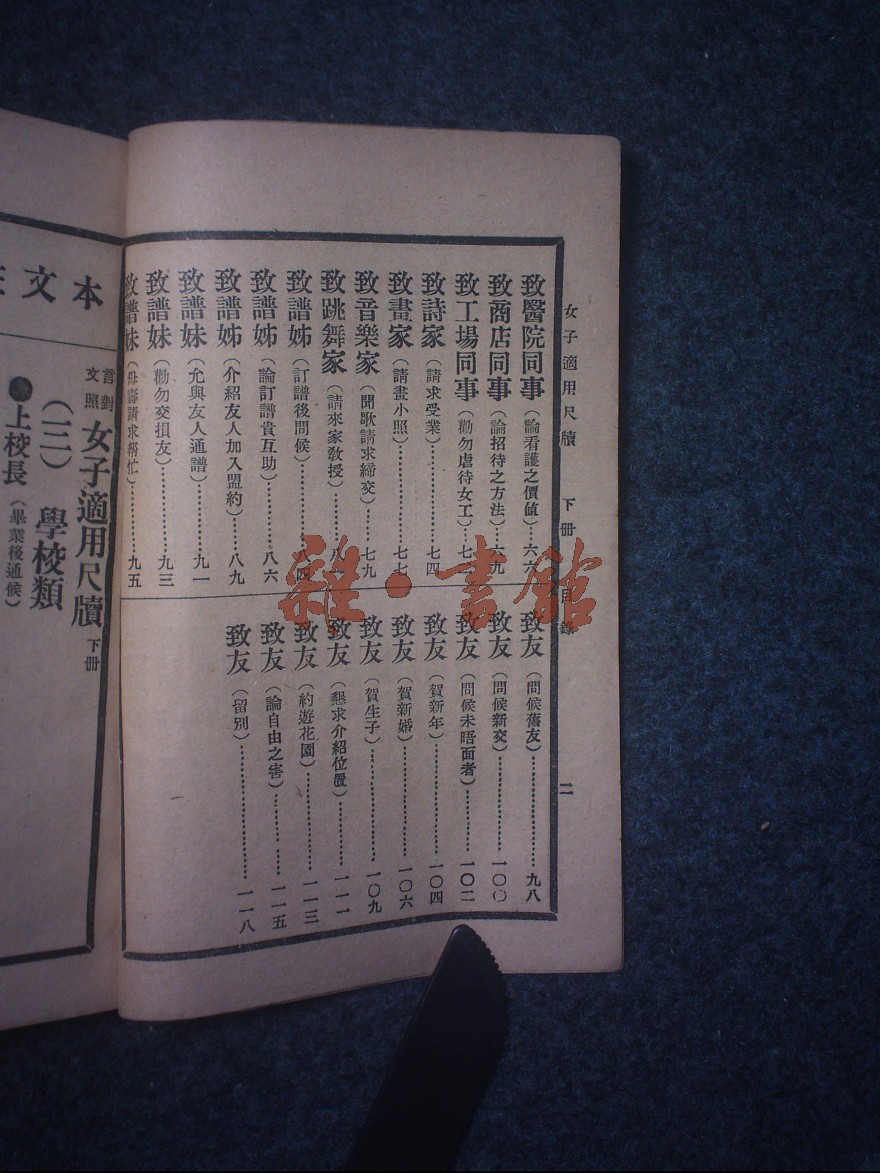 女子適用尺牘 下册 目錄 二
致醫院同事（論看護之價值）…六六
致商店同事（論招待之方法）…六九
致工場同事（勸勿虐待女工）…七
致詩家（請求受業）…七四
致畫家（請畫小照）…七七
致音樂家（聞歌請求締交）…七九
致跳舞家（請來家敎授）…八
致譜姊（訂譜後問候）…八四
致譜姊（論訂譜貴互助）…八六
致譜姊（介紹友人加入盟約）…八九
致譜妹（允與友人通譜）…九一
致譜妹（勸勿交損友）…九三
致譜妹（母壽請求幫忙）…九五
致友（問候舊友）…九八
致友（問候新交）…一〇〇
致友（問候未晤面者）…一〇二
致友（賀新年）…一〇四
致友（賀新婚）…一〇六
致友（賀生子）…一〇九
致友（懇求介紹位置）…一一一
致友（約遊花園）…一一三
致友（論自由之害）…一一五
致友（留別）…一一八
本文
言文對照 女子適用尺牘 下册
（三） 學校類
上校長（畢業後通候）
雜·書館